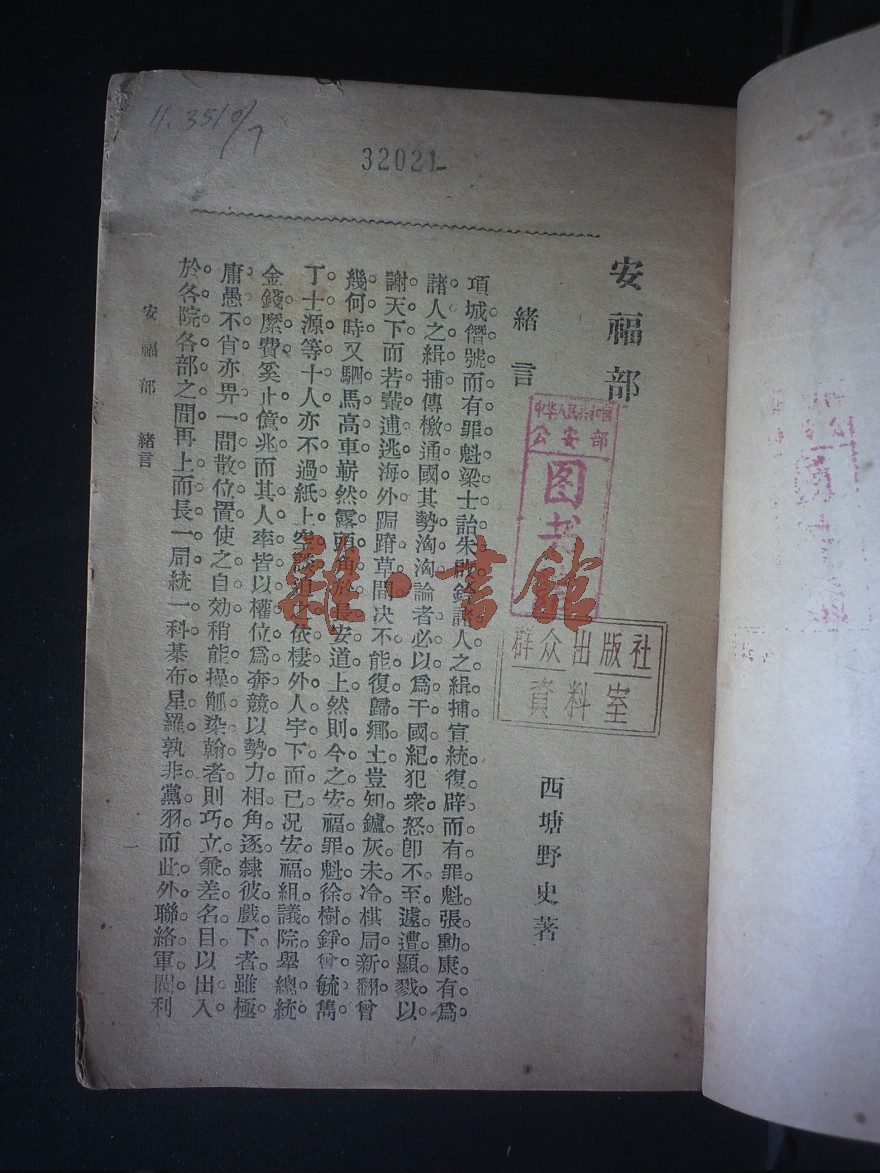 11.3510/7
32021
安福部
西塘野史著
緒言
項城僭號而有罪魁梁士詒朱啟鈐諸人之緝捕宣統復辟而有罪魁張勳康有爲
諸人之緝捕傳檄通國其勢洶洶論者必以爲干國紀犯衆怒卽不至遽遭顯戮以
謝天下而若輩逋逃海外跼蹐草間決不能復歸鄉土豈知鑪灰未冷棋局新翻曾
幾何時又駟馬高車嶄然露頭角於長安道上然則今之安福罪魁徐樹錚曾毓雋
丁士源等十人亦不過紙上空談迫之依棲外人宇下而已況安福組議院舉總統
金錢縻費奚止億兆而其人率皆以權位爲奔競以勢力相角逐隸彼戲下者雖極
庸愚不肖亦畀一間散位置使之自効稍能操觚染翰者則巧立兼差名目以出入
於各院各部之間再上而長一局統一科棊布星羅孰非黨羽而此外聯絡軍閥利
安福部 緒言
一
中华人民共和国
公安部
图书
群众出版社
資料室
雜·書館